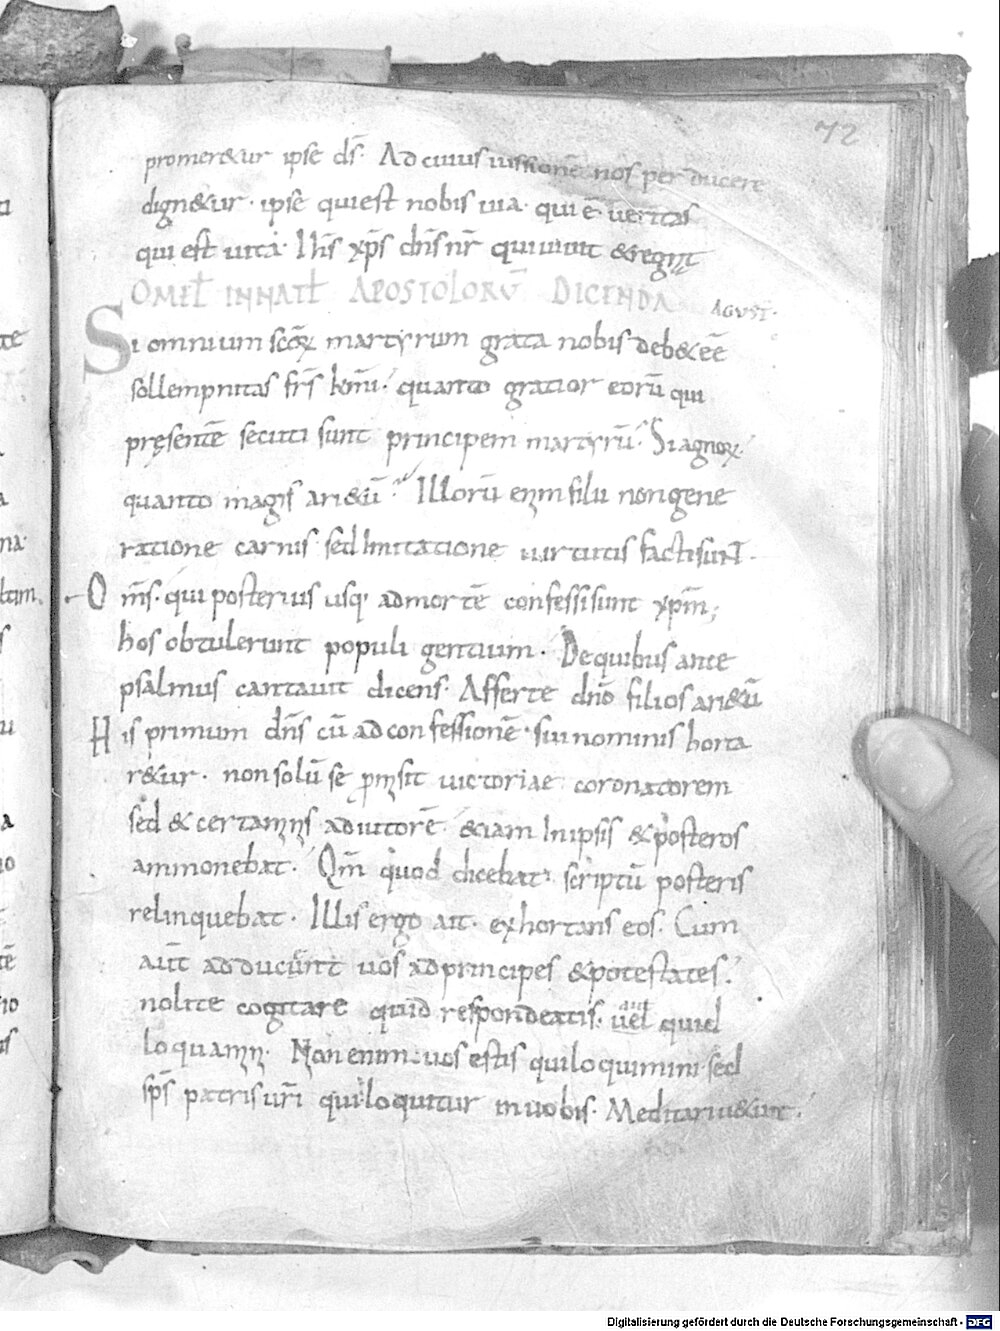 72
promer&ur ipse ds̄. Ad cuius iussionē nos per ducere
dign&ur. ipse qui est nobis uia. qui ē ueritas
qui est uita. Ihs̄ xp̄s dn̄s nr̄ qui uiuit & regnt
OMEL IN NATL APOSTOLORŪ DICENDA AGVST.
Si omnium scōꝝ martyrum grata nobis deb& eē
sollempnitas frs̄ kmi. quanto gratior eorū qui
presentē secuti sunt principem martyrū. Si agnoꝝ.
quanto magis ari&ū. Illorū enim filii non gene
ratione carnis sed Imitatione uirtutis facti sunt.
Om̄s. qui posterius usq; ad mortē confessi sunt xp̄m;
hos obtulerunt populi gentium. De quibus ante
psalmus cantauit dicens. Afferte dn̄o filios ari&ū
His primum dn̄s cū ad confessionē sui nominis horta
r&ur. non solū se promisit uictoriae coronatorem
sed & certaminis adiutorē. &iam In ipsis & posteros
ammonebat. Qm̄ quod dicebat. scriptū posteris
relinquebat. Illis ergo ait. exhortans eos. Cum
aut̄ adducunt uos ad principes & potestates.
nolite cogitare quid respondeatis. uel aut quid
loquamini. Non enim uos estis qui loquimini. sed
sp̄s patris ur̄i qui loquitur in uobis. Meditari u&uit.
Digitalisierung gefördert durch die Deutsche Forschungsgemeinschaft - DFG